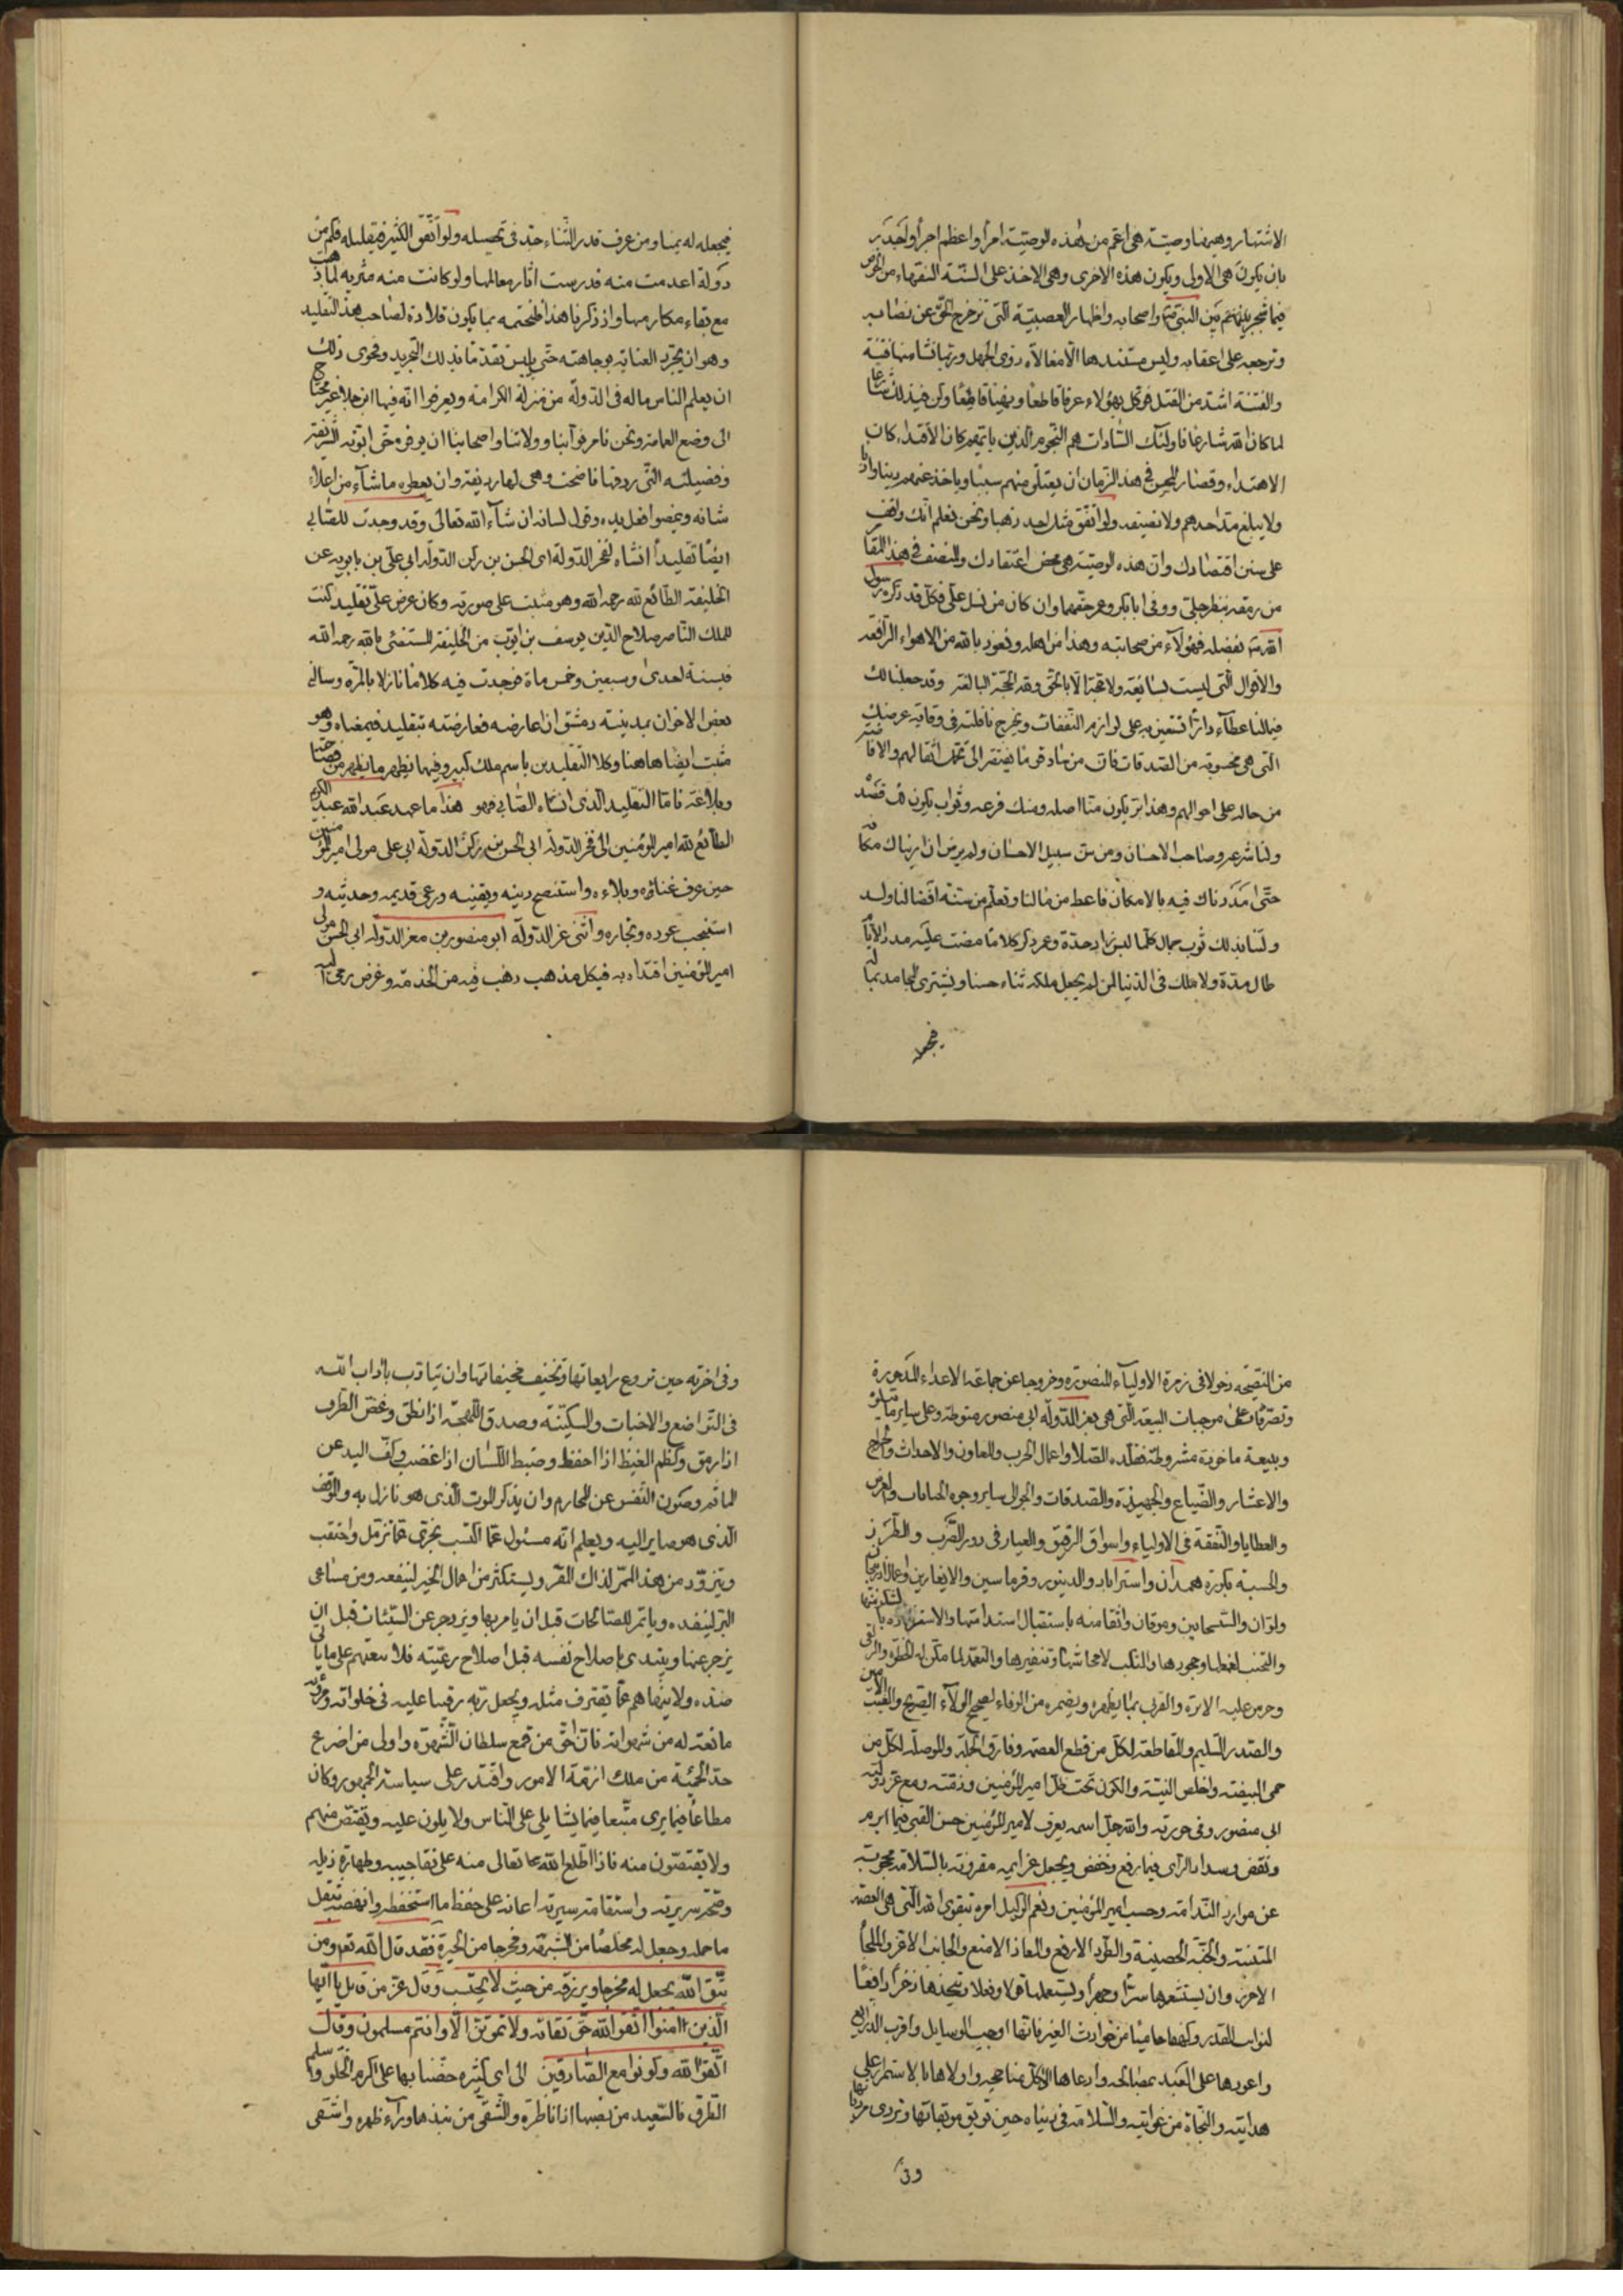 الاشتهار وهيهنا وصيّة هى اعمّ من هذه الوصيّة امرا واعظم اجرا واجدر
بان يكون هى الاولى ويكون هذه الاخرى وهى الاخذ على السنة الفقهاء من الخوض
فيما شجر بينهم بين النبى واصحابه واظهار العصبيّة التى تزحزح الحق عن نصابه
وترجعه على اعقابه وليس مستندها الا مغالاة ذوى الجهل وربما نشا منها فتنة
والفتنة اشد من القتل فوكل بهؤلاء عرفا قاطعا وكن فى ذلك شارعا
لما كان الله شارعا فاولئك السّادات هم النجوم الذين بايهم كان الاقتداء كان
الاهتداء وقصار المحسن فى هذا الزمان ان يعتلق منهم سببا وياخذ عنهم دينا وادبا
ولا يبلغ مدّ احدهم ولا نصيفه ولو انفق مثل احد ذهبا ونحن نعلم انك واقف
على سنن اقتصادك وان هذه الوصيّة هى محض اعتقادك والمنصف فى هذا المقام
من رمقه بنظر جلىّ ووفى ابا بكر وعمر حقهما وان كان من نسل علىّ فكل قد ذكره رسول
الله بفضله فهؤلاء من صحابته وهذا من اهله ونعوذ بالله من الاهواء الزائفة
والاقوال التى ليست بسائغة ولا حجّة الا بالحق وله الحجّة البالغة وقد جعلنا لك
فى مالنا عطآء دارّا تستعين به على لوازم النفقات وتخرج نافلته فى وقاية عرضك
التى هى محسوبة من الصدقات فان من ساد قوما يفتقر الى تحمل اثقالهم والافاضة
من حاله على احوالهم وهذا برّ يكون منّا اصله ومنك فرعه وثواب يكون لك قصده
ولنا شرعه وصاحب الاحسان من سنّ سبيل الاحسان ولم يرض ان ارضاك مكانه
حتى مددناك فيه بالامكان فاعط من مالنا وتعلم من سنة افضالنا ولد
ولنا بذلك ثوب جمال كلما لبس زاد جدّة وعمر ذكر كلما مضت عليه مدد الايام
طال مدة ولا ملك فى الدنيا لمن لم يجعل ملكه ثناء حسنا ويشترى المحامد بما
فيجعله
فيجعله له ثمنا ومن عرف قدر الثناء جدّ فى تحصيله ولو انفق الكثير فى قليله فكم من
دولة اعدمت منه قدرست اثار معالمها ولو كانت منه مثرية لما ذهب
مع بقاء مكارمها واذ ذكرنا هذا فلنختمه بما يكون قلادة لصاحب هذا التقليد
وهو ان يجرّد العناية بوجاهته حتى يلبس تقدّما بذلك التجريد وفحوى ذلك
ان يعلم الناس ماله فى الدولة من منزلة الكرامة ويعرفوا انه فيها ابن جلا غير محتاج
الى وضع العمامة ونحن نامر نوّابنا وولاتنا واصحابنا ان يوفوه حق ابوّته الشريفة
وفضيلته التى ردفها فاضحت وهى لها رديفة وان يعطوه ما شآء من اعلاء
شانه ويمضوا فعل يده وقول لسانه ان شآء الله تعالى وقد وجدت للصّابى
ايضا تقليدا انشاه لفخر الدولة ابى الحسن بن ركن الدولة ابى على بن بابويه عن
الخليفة الطائع لله رحمه الله وهو مثبت على صورته وكان عرض علىّ تقليد كتب
للملك الناصر صلاح الدين يوسف بن ايوب من الخليفة المستضئ بالله رحمه الله
فى سنة احدى وسبعين وخمس ماة فوجدت فيه كلاما نازلا بالمرّة وسالنى
بعض الاخوان بمدينة دمشق ان اعارضه فعارضته بتقليد فى معناه وهو
مثبت ايضا هاهنا وكلا التقليدين باسم ملك كبير وفيهما يظهر ما يظهر من فصاحة
وبلاغة فامّا التقليد الذى انشاه الصّابى فهو هذا ما عهد عبد الله عبد الكريم
الطائع لله امير المؤمنين الى فخر الدولة ابى الحسن بن ركن الدولة ابى على مولى امير المؤمنين
حين عرف غناءه وبلاءه واستصح دينه ويقينه ورعى قديمه وحديثه و
استنجب عوده ونجاره واثنى عز الدولة ابو منصور بن معز الدولة ابى الحسن مولى
امير المؤمنين اقتداه به فى كل مذهب ذهب فيه من الخدمة وغرض رمى اليه
من النصيحة دخولا فى زمرة الاولياء المنصورة وخروجا عن جماعة الاعداء المدحورة
وتصرّفا على موجبات البيعة التى هى بعز الدولة ابى منصور منوطة وعلى ساير ما يتلوه
ويتبعه ماخوذة مشروطة فقلده الصلاة واعمال الحرب والمعاون والاحداث والخراج
والاعشار والضياع والجهبذة والصدقات والجوالى وساير وجوه الجبايات والعرض
والعطايا والنفقة فى الاولياء واسواق الرقيق والعيار فى دور الضرب والطرز
والحسبة بكورة همدان واستراباد والدينور وقرماسين والايغارين واعمال اذربيجان
ولرّان والسّحانين وموقان واثقا منه باستقبال استدامتها والاستزادة بالشكر منها
والتجنب لغمطها وجحودها والتنكب لايحاشها وتنفيرها والتعمد لما مكّن له الحظوة والزلفى
وحرم عليه الاثرة والقربى بما يظهره ويضمره من الوفاء لصحيح الولآء الصريح والغيب الامين
والصدر السليم والمقاطعة لكل من قطع العصمة وفارق الجملة والموصلة لكل من
حمى البيضة واخلص النيّة والكون تحت ظل امير المؤمنين وذمّته ومع عز دولته
ابى منصور وفى حوزته والله جل اسمه يعرف لامير المؤمنين حسن العقبى فيما ابرم
ونقض وسداد الراى فيما رفع وخفض ويجعل عزايمه مقرونة بالسّلامة محجوبة
عن موارد الندامة وحسب امير المؤمنين ونعم الوكيل امره بتقوى الله التى هى العصمة
المتينة والجنّة الحصينة والطود الارفع والمعاذ الامنع والجانب الاعز والملجا
الاحرز وان يستشعرها سرّا وجهرا ويستعملها قولا وفعلا ويتخذها ذخرا رافعا
لنوايب القدر وكهفا حاميا من حوادث الغير فانها اوجب الوسايل واقرب الذرايع
واعودها على العبد بمصالحه وادعاها الى كل مناجحه واولاها بالاستمرار على
هدايته والنجاة من غوايته والسّلامة فى دنياه حين توبق موبقاتها وتردى مردياتها
وفى
وفى اخرته حين تروع رايعاتها وتخيف مخيفاتها وان يتادّب باداب الله
فى التواضع والاخبات والسكينة وصدق اللهجة اذا نطق وغض الطرف
اذا رمق وكظم الغيظ اذا احفظ وضبط اللسان اذا غضب وكف اليد عن
الماثم وصون النفس عن المحارم وان يذكر الموت الذى هو نازل به والموقف
الذى هو صاير اليه ويعلم انه مسئول عما اكتسب مجزى عما تزمّل واحتقب
ويتزوّد من هذا الممر لذاك المقر ويستكثر من اعمال الخير لينفعه ومن مساعى
البر لينفده وياتمر للصالحات قبل ان يامر بها ويزدجر عن السيئات قبل ان
يزجر عنها ويبتدى باصلاح نفسه قبل اصلاح رعيّته فلا يبعثهم على ما ياتى
ضده ولا ينهاهم عما يقترف مثله ويجعل ربه رقيبا عليه فى خلواته ومروّته
مانعة له من شهواته فان احق من قمع سلطان الشهوة واولى من اضرع
حد الحميّة من ملك ازمّة الامور واقتدر على سياسة الجمهور وكان
مطاعا فيما يرى متّبعا فيما يشا يلى على الناس ولا يلون عليه ويقتص منهم
ولا يقتصّون منه فاذا اطلع الله تعالى منه على نقا جيبه وطهارة ذيله
وصحّة سريرته واستقامة سيرته اعانه على حفظ ما استحفظه وانهضه بثقل
ما حمله وجعل له مخلصا من الشبهة ومخرجا من الحيرة فقد قال الله تعم ومن
يتق الله يجعل له مخرجا ويرزقه من حيث لا يحتسب وقال عز من قايل يا ايّها
الذين امنوا اتقوا الله حق تقاته ولا تموتن الا وانتم مسلمون وقال
اتقوا الله وكونوا مع الصّادقين الى اى كثيرة حضّنا بها على اكرم الخلق واسلم
الطرق فالسّعيد من نصبها ازا ناظره والشقىّ من نبذها ورآء ظهره واشقى